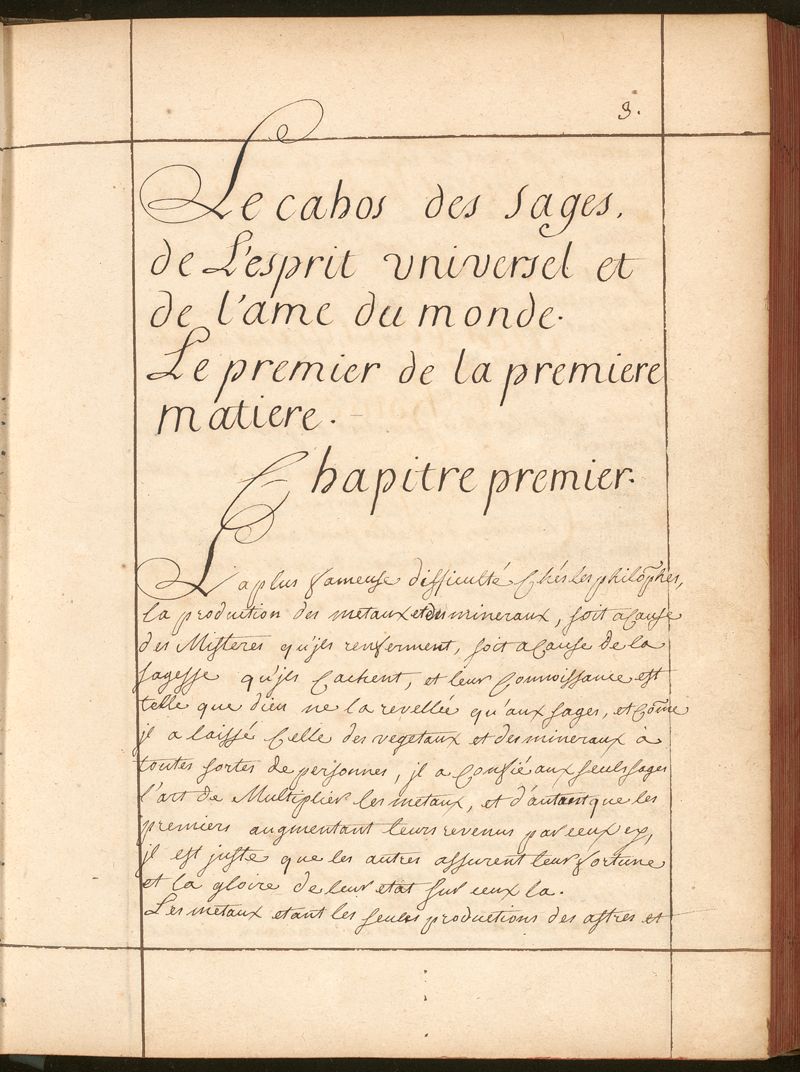 3.
Le cahos des sages,
de L'esprit vniversel et
de l'ame du monde.
Le premier de la premiere
matiere.
Chapitre premier.
La plus fameuse difficulté Chés les philõphes,
la production des metaux et des mineraux, soit acause
des Misteres qu'jls renferment, soit acause de la
sagesse qu'jls Cachent, et leur Connoissance est
telle que dieu ne la revellée qu'aux sages, et Cõme
jl a laissé Celle des vegetaux et des mineraux a
toutes sortes de personnes, jl a Confié aux seuls sages
l'art de Multiplier les metaux, et d'autant que les
premiers augmentant leurs revenus par ceux cy,
jl est juste que les autres assurent leur fortune
et la gloire de leur etat sur ceux la.
Les metaux etant les seules productions des astres et